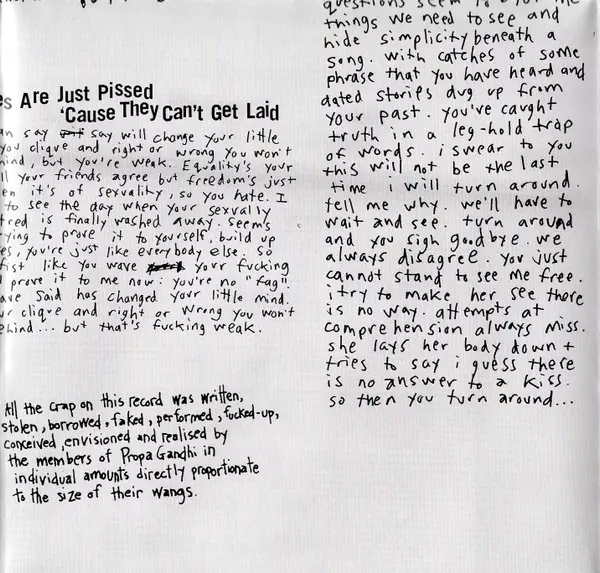 s Are Just Pissed
'Cause They Can't Get Laid
say say will change your little
you clique and right or wrong you won't
mind, but you're weak. Equality's your
your friends agree but freedom's just
en it's of sexuality, so you hate. I
to see the day when your sexually
tred is finally washed away. Seems
ying to prove it to yourself, build up
es, you're just like everybody else. So
fist like you wave your fucking
prove it to me now: you're no "fag".
ave said has changed your little mind.
ur clique and right or wrong you won't
ehind... but that's fucking weak.
All the crap on this record was written,
stolen, borrowed, faked, performed, fucked-up,
conceived, envisioned and realised by
the members of PropaGandhi in
individual amounts directly proportionate
to the size of their wangs.
questions seem to
things we need to see and
hide simplicity beneath a
song. with catches of some
phrase that you have heard and
dated stories dug up from
your past. you've caught
truth in a leg-hold trap
of words. i swear to you
this will not be the last
time i will turn around.
tell me why. we'll have to
wait and see. turn around
and you sigh goodbye. we
always disagree. you just
cannot stand to see me free.
i try to make her see there
is no way. attempts at
comprehension always miss.
she lays her body down +
tries to say i guess there
is no answer to a kiss.
so then you turn around...